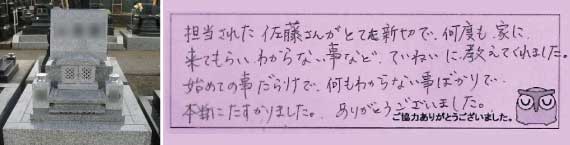 担当された佐藤さんがとても親切で、何度も家に
来てもらい、わからない事など、ていねいに教えてくれました。
始めての事だらけで、何もわからない事ばかりで、
本当にたすかりました。ありがとうございました。
ご協力ありがとうございました。